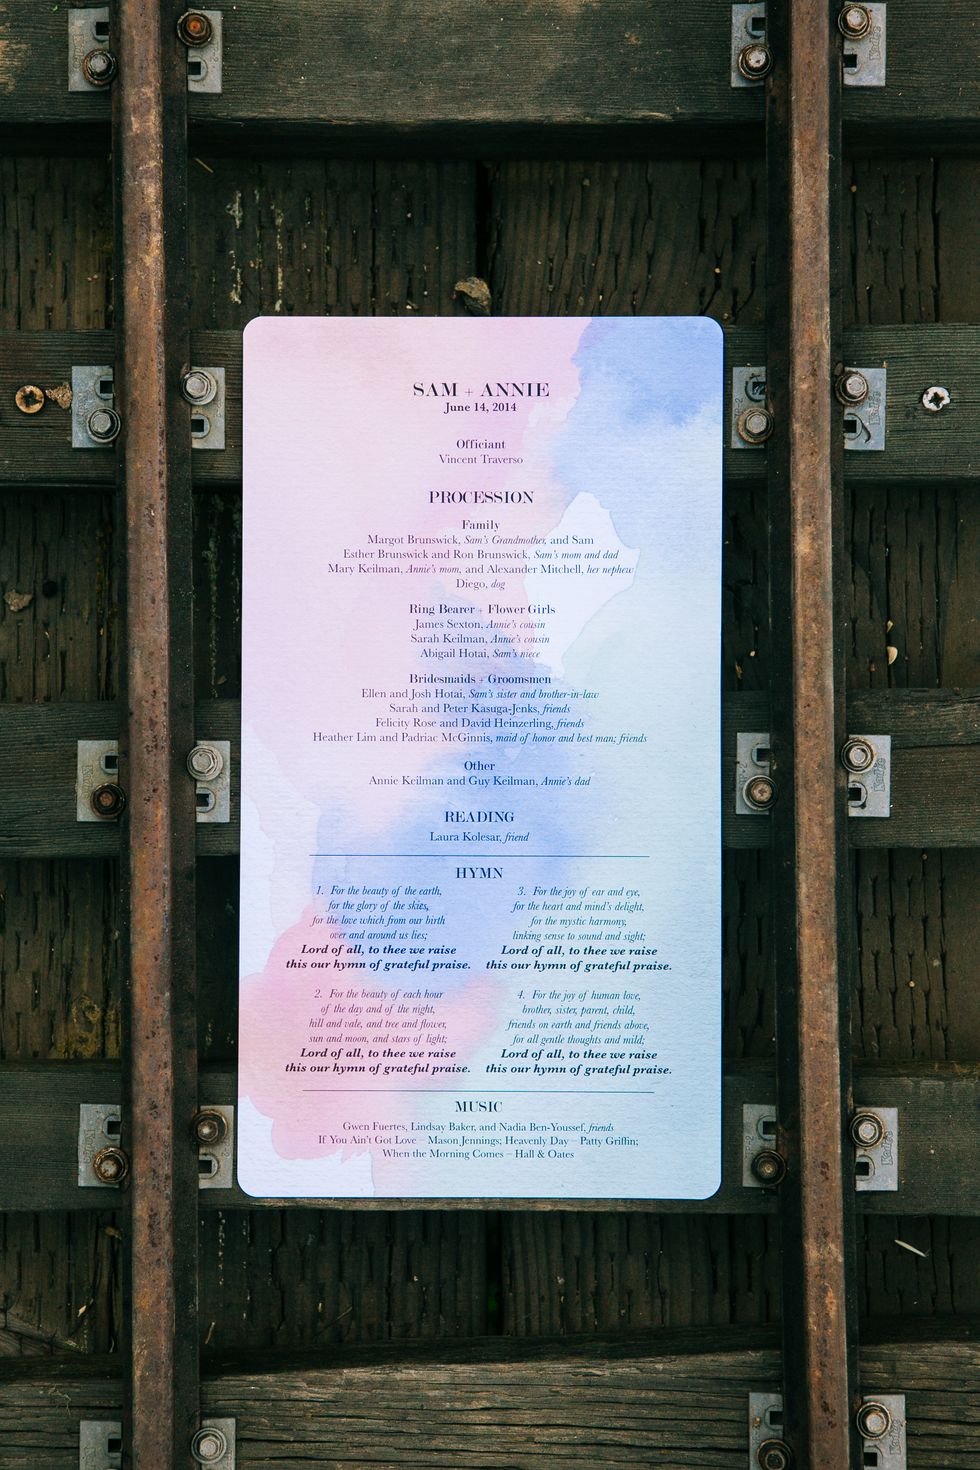 SAM + ANNIE
June 14, 2014
Officiant
Vincent Traverso
PROCESSION
Family
Margot Brunswick, Sam's Grandmother, and Sam
Esther Brunswick and Ron Brunswick, Sam's mom and dad
Mary Keilman, Annie's mom, and Alexander Mitchell, her nephew
Diego, dog
Ring Bearer + Flower Girls
James Sexton, Annie's cousin
Sarah Keilman, Annie's cousin
Abigail Hotai, Sam's niece
Bridesmaids + Groomsmen
Ellen and Josh Hotai, Sam's sister and brother-in-law
Sarah and Peter Kasuga-Jenks, friends
Felicity Rose and David Heinzerling, friends
Heather Lim and Padriac McGinnis, maid of honor and best man; friends
Other
Annie Keilman and Guy Keilman, Annie's dad
READING
Laura Kolesar, friend
HYMN
1. For the beauty of the earth,
for the glory of the skies,
for the love which from our birth
over and around us lies;
Lord of all, to thee we raise
this our hymn of grateful praise.
2. For the beauty of each hour
of the day and of the night,
hill and vale, and tree and flower,
sun and moon, and stars of light;
Lord of all, to thee we raise
this our hymn of grateful praise.
3. For the joy of ear and eye,
for the heart and mind's delight,
for the mystic harmony,
linking sense to sound and sight;
Lord of all, to thee we raise
this our hymn of grateful praise.
4. For the joy of human love,
brother, sister, parent, child,
friends on earth and friends above,
for all gentle thoughts and mild;
Lord of all, to thee we raise
this our hymn of grateful praise.
MUSIC
Gwen Fuertes, Lindsay Baker, and Nadia Ben-Youssef, friends
If You Ain't Got Love – Mason Jennings; Heavenly Day – Patty Griffin;
When the Morning Comes – Hall & Oates